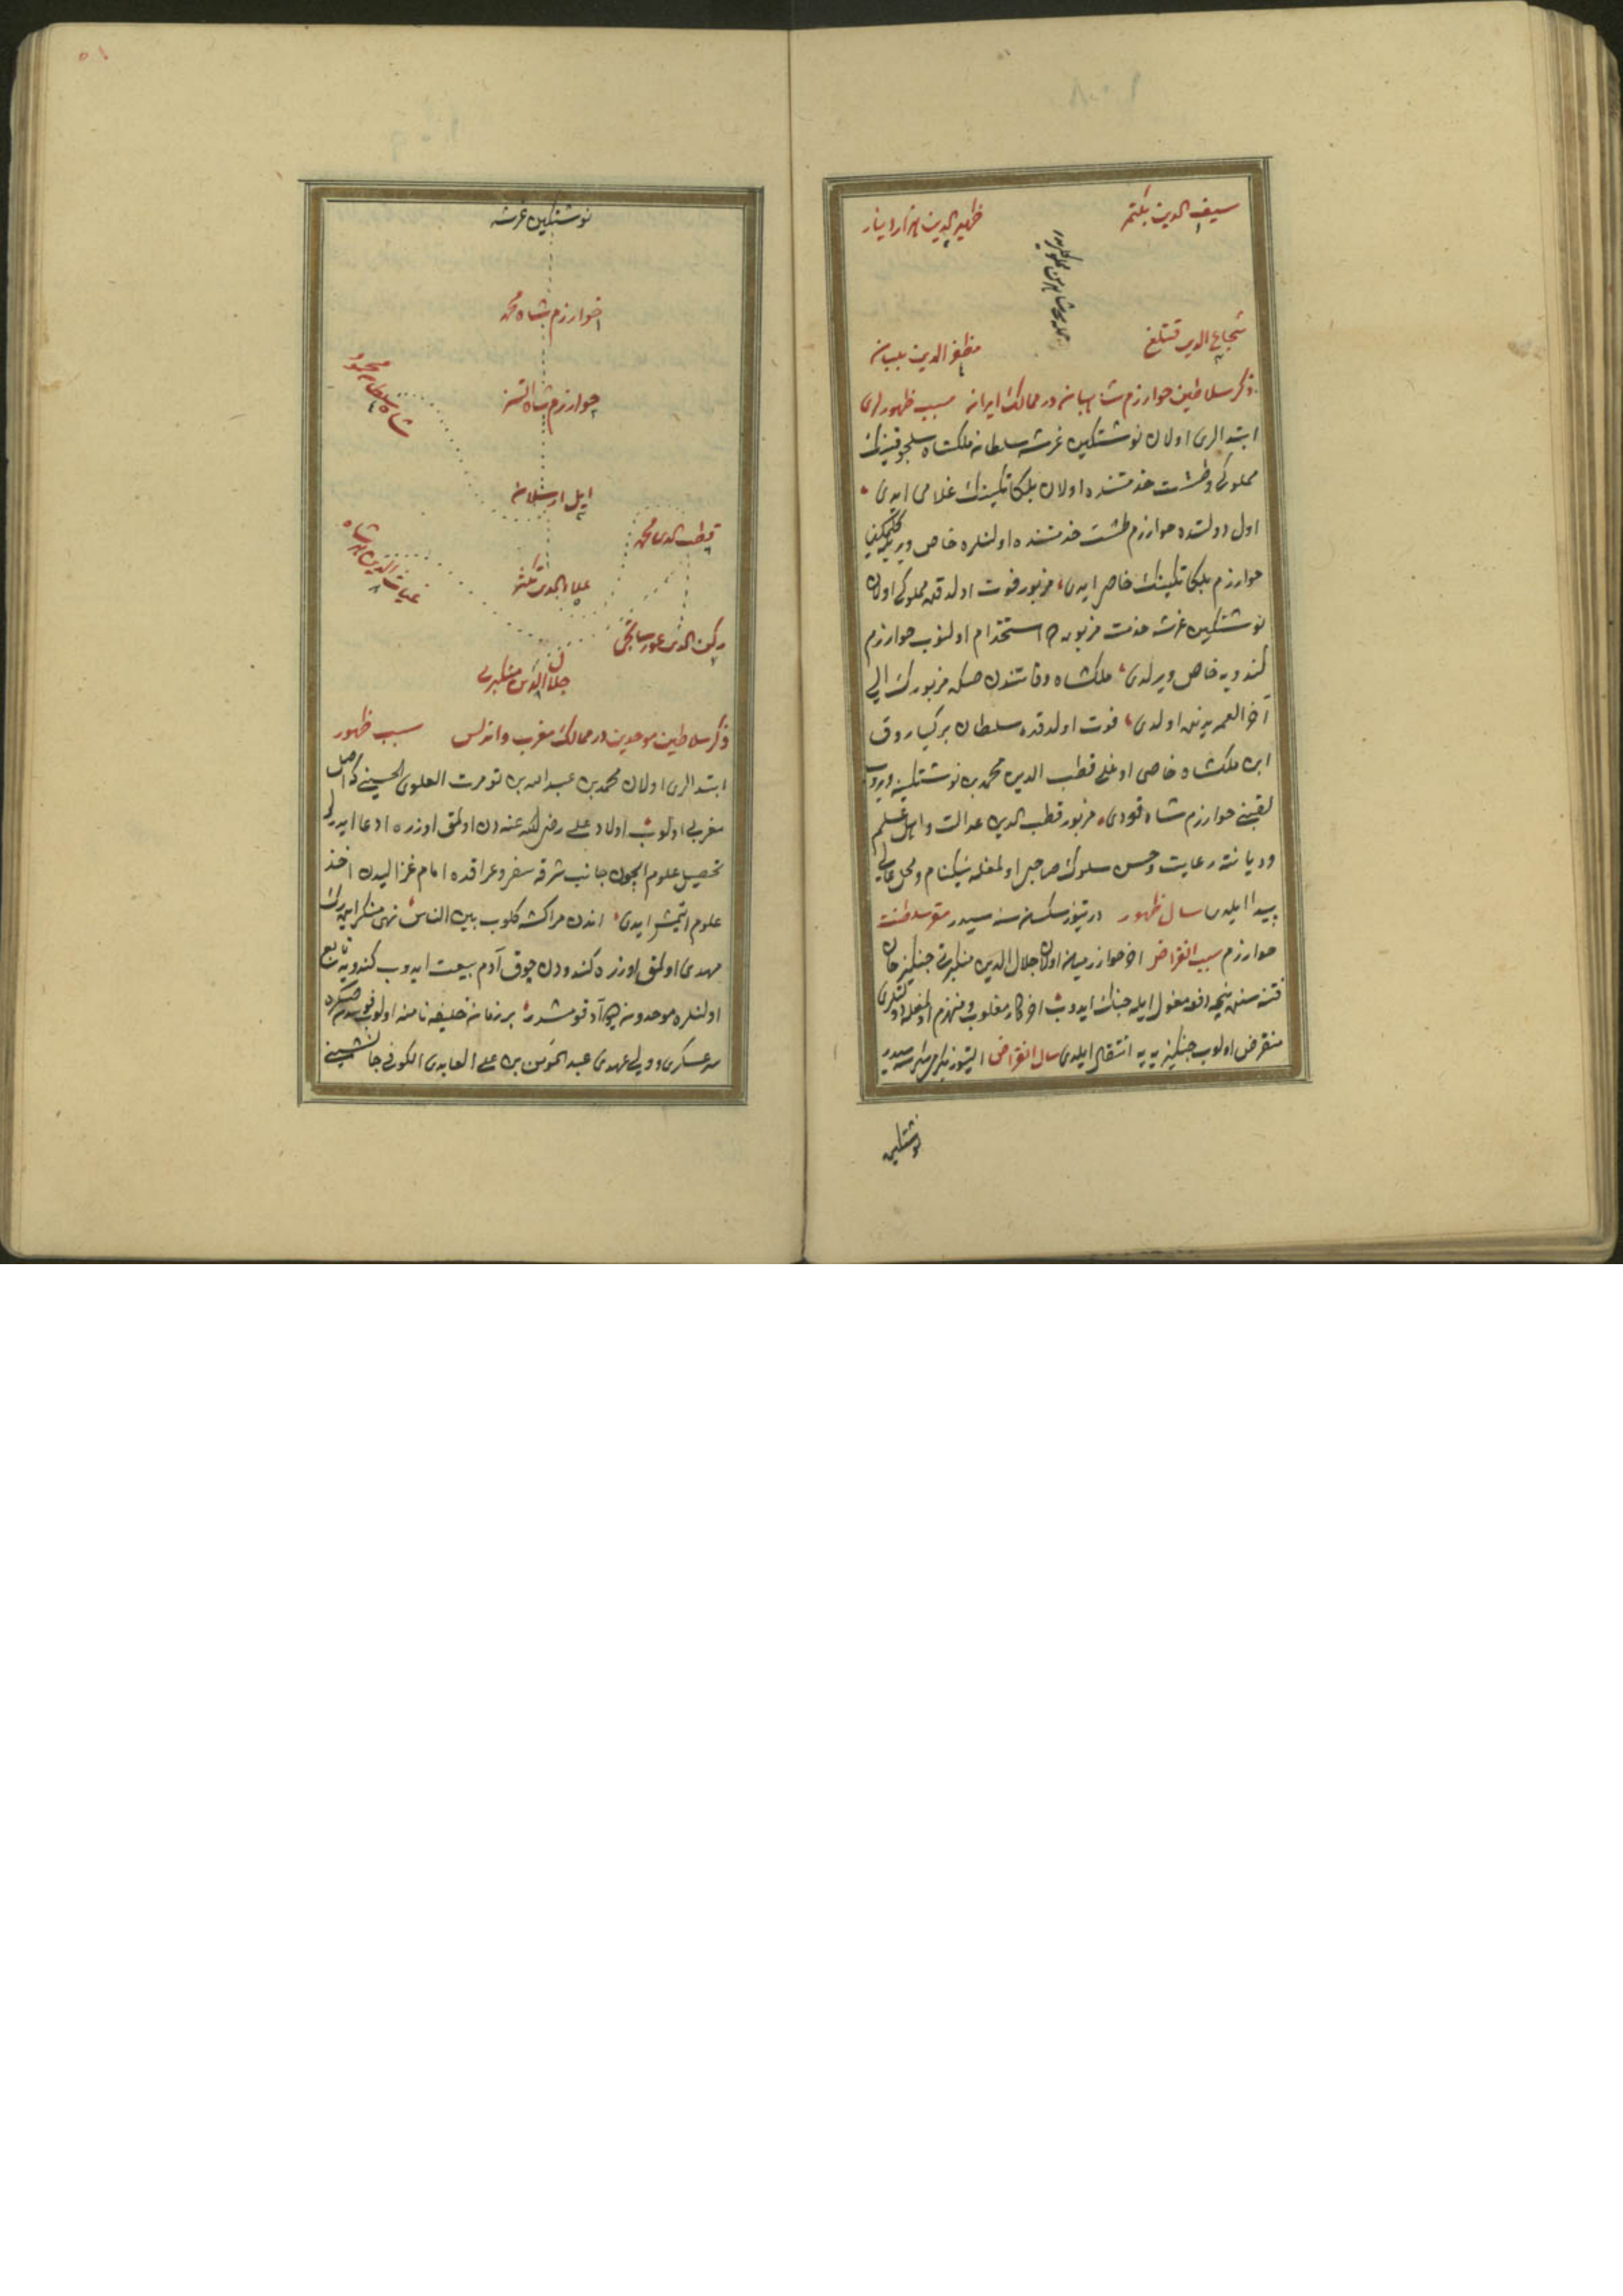 سيف الدين بكتمر
١
ظهير الدين هزاردينار
شجاع الدين قتلغ
مظفر الدين
٤
ذكر سلاطين خوارزم شاهيان در ممالك ايران سبب ظهورلرى
ابتدالرى اولان نوشتكين غرشه سلطان ملكشاه سلجوقينك
مملوكى وطشت خدمتنده اولان بلكاتكينك غلامى ايدى
اول دولتده خوارزم طشت خدمتنده اولنلره خاص
خوارزم بلكاتكينك خاصى ايدى مزبور فوت اولدقده مملوكى اولان
نوشتكين غرشه خدمت مزبوره استخدام اولنوب خوارزم
كندويه خاص ويرلدى ملكشاه وفاتندن صكره مزبورك الى
آخر العمر اولدى فوت اولدقده سلطان بركياروق
ابن ملكشاه خاصى اوغلى قطب الدين محمد بن نوشتكينه ويروب
لقبنى خوارزم شاه قودى مزبور قطب الدين عدالت واهل علم
وديانته رعايت وحسن سلوك صاحبى اولمغله نيكنام ومحل عالى
پيدا ايلدى سال ظهور درتيوز سكسن سيدر مقر سلطنت
خوارزم سبب انقراض آخر خوارزميان اولان جلال الدين منكبرتى جنكيز خان
فتنه سنده نيچه دفعه مغول ايله جنك ايدوب آخر كار مغلوب ومنهزم اولمغله دولتلرى
منقرض اولوب جنكيزيه يه انتقال ايلدى سال انقراض التيوز يكرمى
نوشتكين
٥١
نوشتكين غرشه
خوارزم شاه محمد
١
خوارزم شاه اتسز
٢
سلطان شاه محمود
٤
ايل ارسلان
٣
قطب الدين محمد
غياث الدين شاه
٨
علاء الدين تكش
٥
ركن الدين غورسانجى
٧
جلال الدين منكبرتى
ذكر سلاطين موحدين در ممالك مغرب واندلس سبب ظهور
ابتدالرى اولان محمد بن عبد الله بن تومرت العلوى الحسينى كه اصل
مغربى اولوب اولاد على رضى الله عنه دن اولمق اوزره ادعا ايدرلر
تحصيل علوم ايچون جانب شرقه سفر وعراقده امام غزاليدن اخذ
علوم ايتمش ايدى اندن مراكشه كلوب بين الناس نهى منكر ايدرك
مهدى اولمق اوزره كندودن چوق آدم بيعت ايدوب كندويه تابع
اولنلره موحدون ديو آد قومشدر بر زمان خليفه نامنه اولوب صكره
سر عسكرى وولى عهدى عبد المؤمن بن على العابدى الكوفى جانشينى